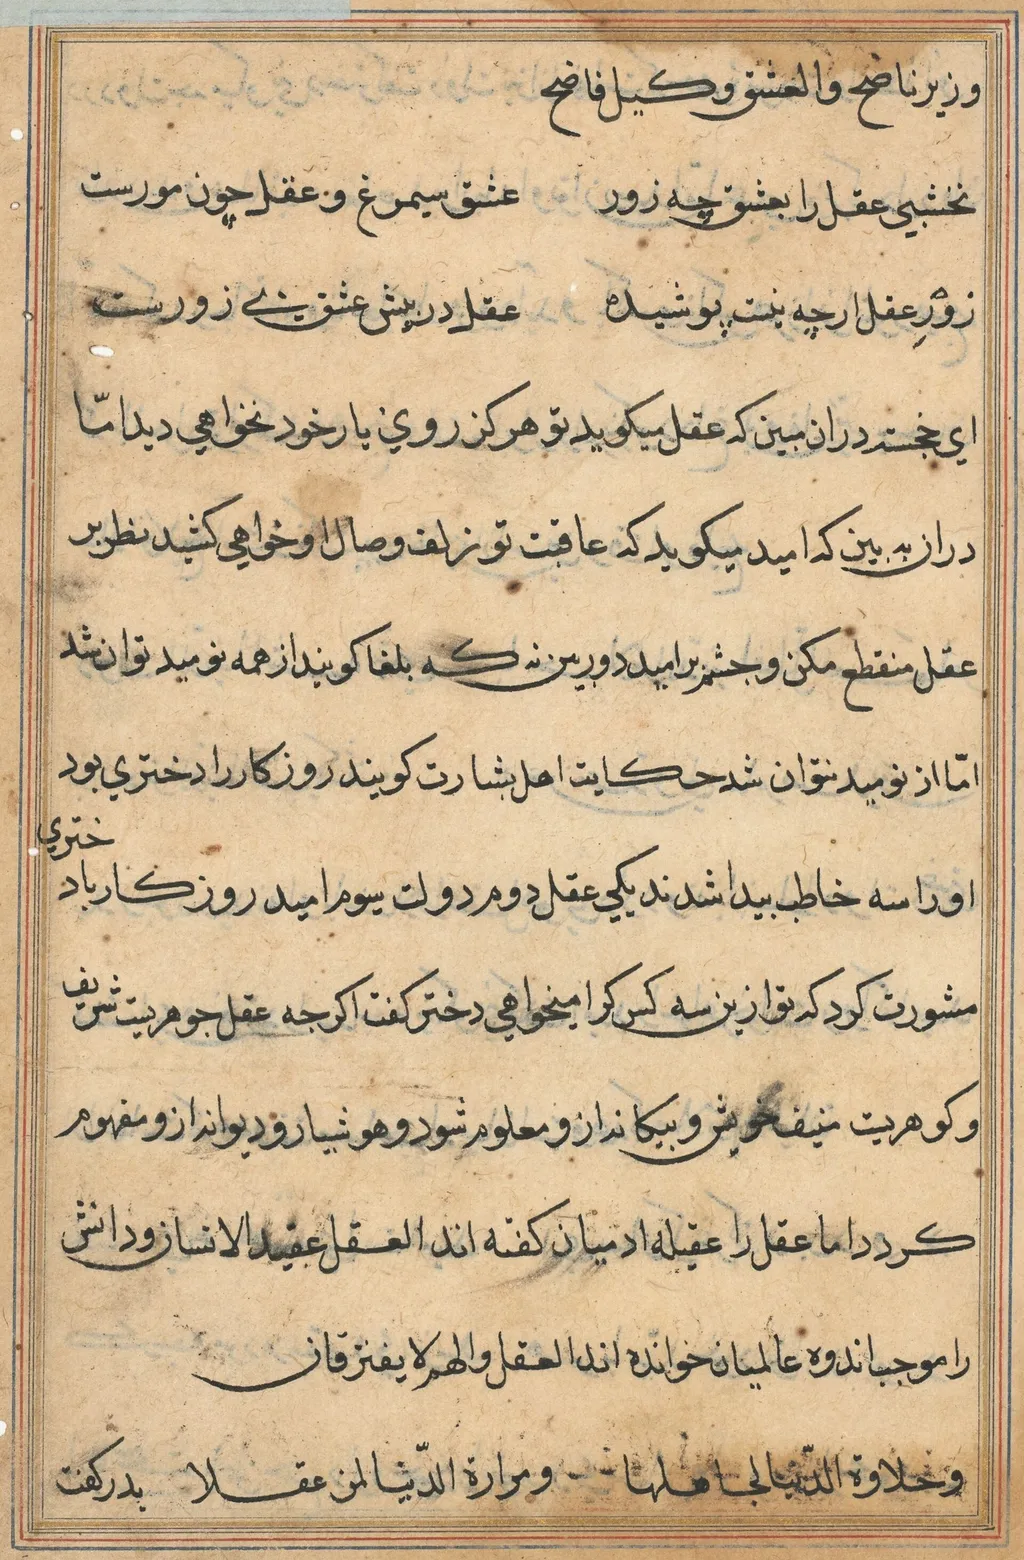 وزیر ناصح والعشق وکیل فاضح
نخشبی عقل را بعشق چه زور عشق سیمرغ و عقل چون مورست
زور عقل ارچه نیست پوشیده عقل در پیش عشق بی زورست
ای خجسته در ان مبین که عقل میکوید تو هرکز روی یار خود نخواهی دید اما
در ان به بین که امید میکوید که عاقبت تو زلف وصال او خواهی کشید نظر بر
عقل منقطع مکن و جشم بر امید دوربین نه که بلغا کویند از همه نومید توان شد
اما از نومید نتوان شد حکایت اهل بشارت کویند روزکار را دختری بود
اورا سه خاطب بیدا شدند یکی عقل دوم دولت سیوم امید روزکار با د
ختری
مشورت کرد که تو ازین سه کس کرا میخواهی دختر کفت اکرجه عقل جوهریت شریف
و کوهریت منیف خویش و بیکانه ازو معلوم شود و هوشیار و دیوانه ازو مفهوم
کردد اما عقل را عقیله ادمیان کفته اند العقل عقید الانسان و دانش
را موجب اندوه عالمیان خوانده اند العقل والهم لا یفترقان
وحلاوة الدّنیا لجاهلها ومرارة الدّنیا لمن عقلا بدر کفت